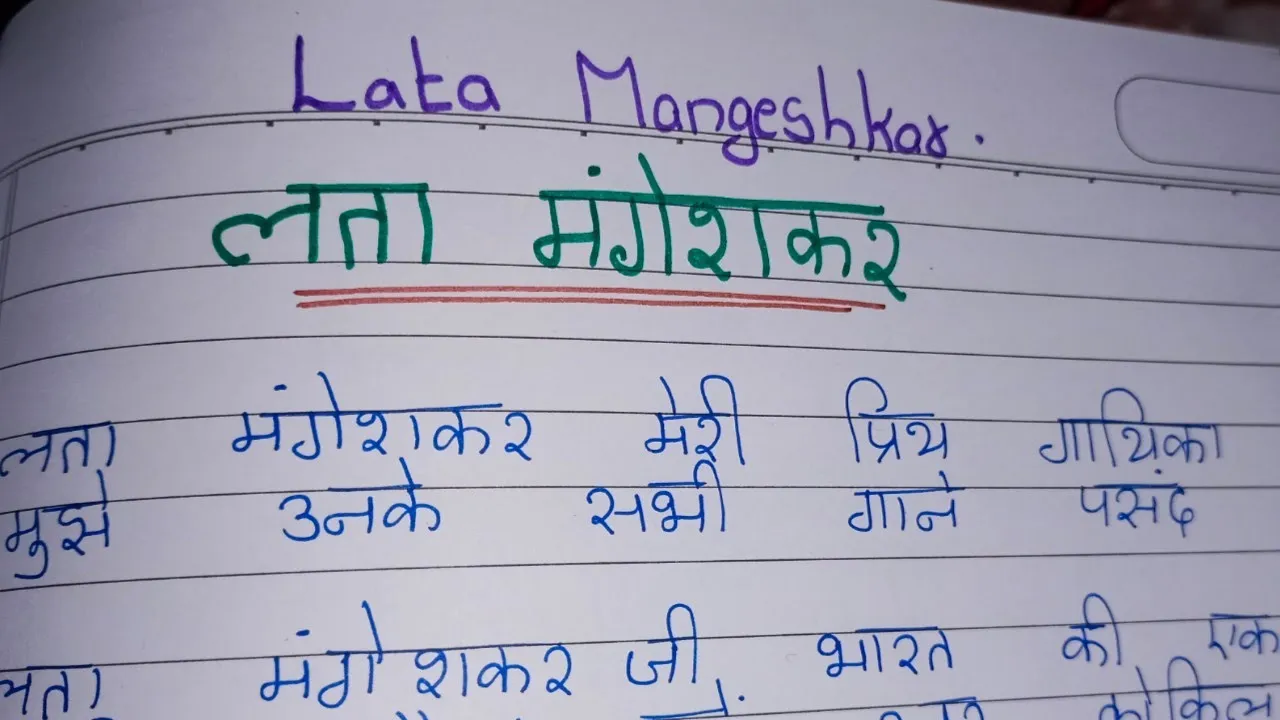 Lata Mangeshkar.
लता मंगेशकर
लता मंगेशकर मेरी प्रिय गायिका
मुझे उनके सभी गाने पसंद
लता मंगेशकर जी भारत की एक
कोकिल